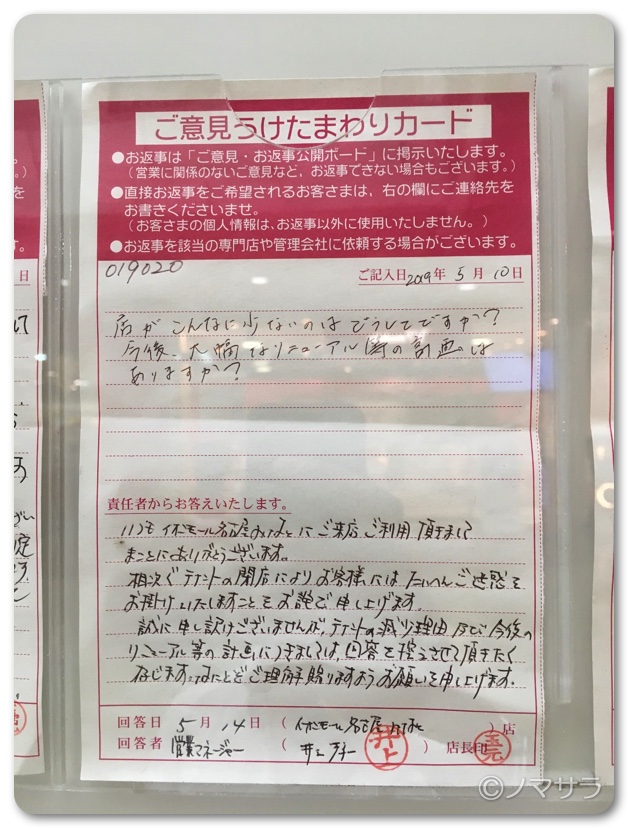 ご意見うけたまわりカード
●お返事は「ご意見・お返事公開ボード」に掲示いたします。
（営業に関係のないご意見など、お返事できない場合もございます。）
●直接お返事をご希望されるお客さまは、右の欄にご連絡先を
お書きくださいませ。
（お客さまの個人情報は、お返事以外に使用いたしません。）
●お返事を該当の専門店や管理会社に依頼する場合がございます。
019020
ご記入日2019年 5月 10日
店がこんなに少ないのはどうしてですか？
今後、大幅なリニューアル等の計画は
ありますか？
責任者からお答えいたします。
いつもイオンモール名古屋みなとにご来店ご利用頂きまして
まことにありがとうございます。
相次ぐテナントの閉店によりお客様にはたいへんご迷惑を
お掛けいたしますことをお詫び申し上げます。
誠に申し訳ございませんが、テナントの減少理由及び今後の
リニューアル等の計画につきましては、回答を控えさせて頂きたく
存じます。なにとぞご理解賜りますようお願いを申し上げます。
回答日 5月 14日 （イオンモール名古屋みなと ）店
回答者 営業マネージャー （井上 ） 井上 店長印
©ノマサラ